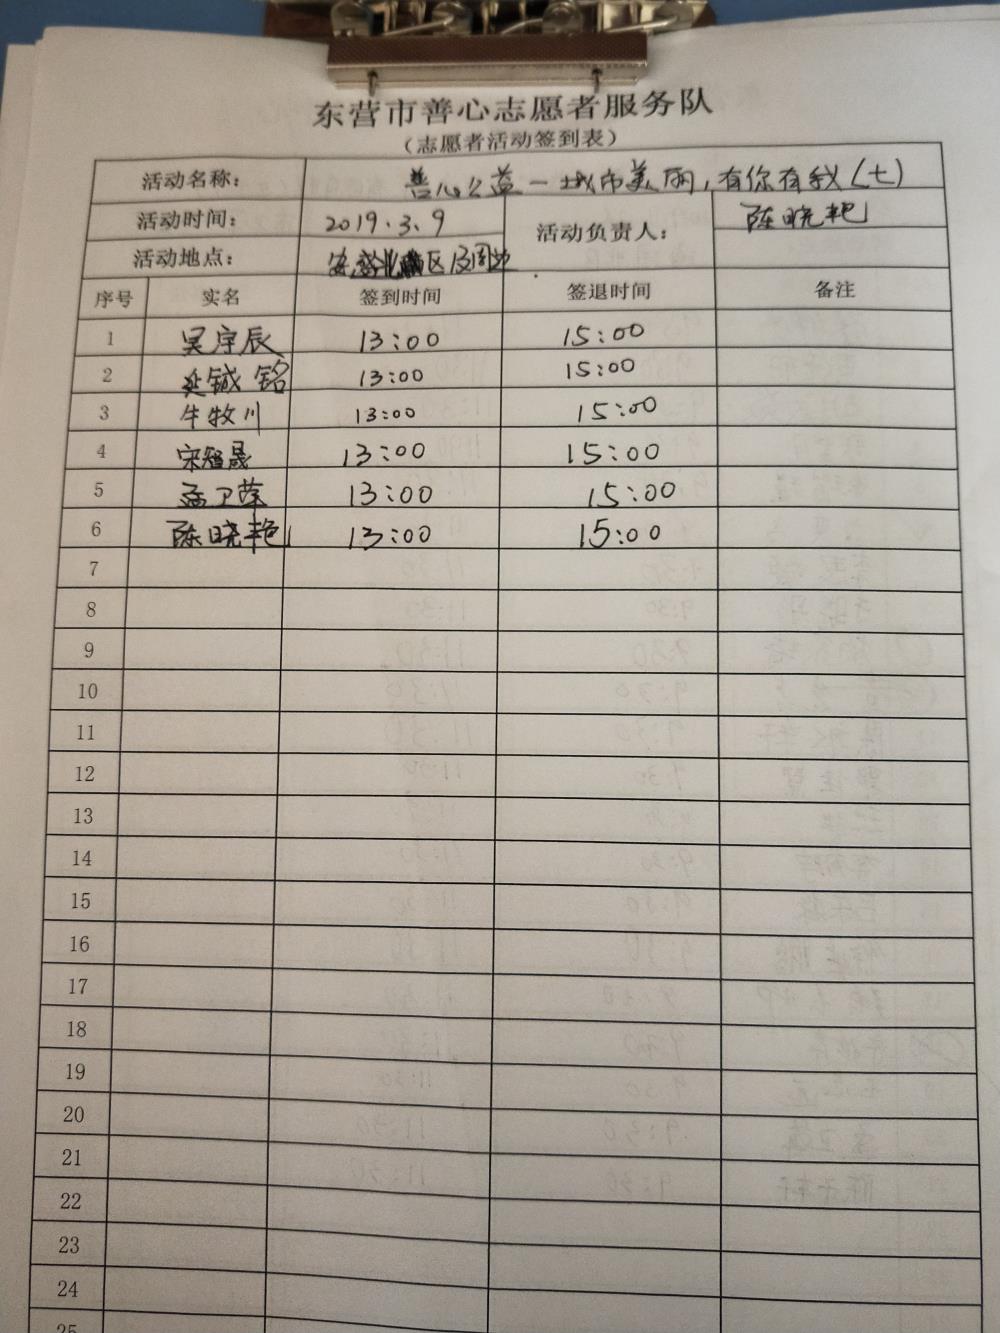 东营市善心志愿者服务队
（志愿者活动签到表）
活动名称： 善心公益一城市美丽，有你有我（七）
活动时间： 2019.3.9 活动负责人： 陈晓艳
活动地点： 区及周边
序号 实名 签到时间 签退时间 备注
1 吴宇辰 13:00 15:00
2 延铖铭 13:00 15:00
3 牛牧川 13:00 15:00
4 宋智晟 13:00 15:00
5 孟卫蕖 13:00 15:00
6 陈晓艳 13:00 15:00
7
8
9
10
11
12
13
14
15
16
17
18
19
20
21
22
23
24
25